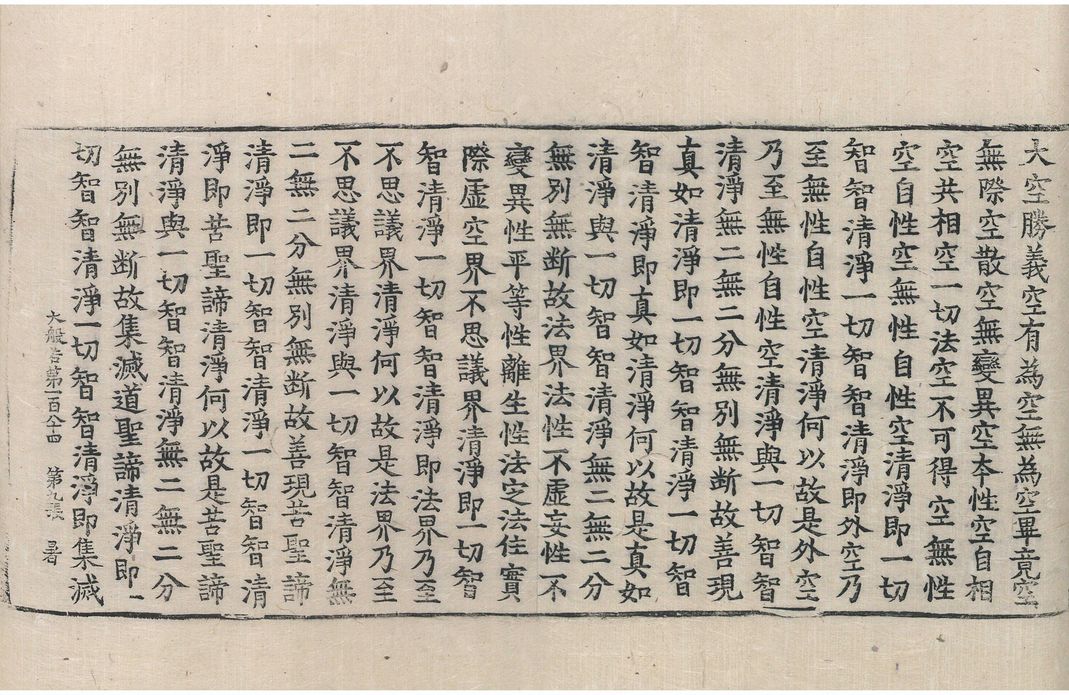 大空勝義空有為空無為空畢竟空
無際空散空無變異空本性空自相
空共相空一切法空不可得空無性
空自性空無性自性空清淨即一切
智智清淨一切智智清淨即外空乃
至無性自性空清淨何以故是外空
乃至無性自性空清淨與一切智智
清淨無二無二分無別無断故善現
真如清淨即一切智智清淨一切智
智清淨即真如清淨何以故是真如
清淨與一切智智清淨無二無二分
無別無断故法界法性不虛妄性不
變異性平等性離生性法定法住實
際虛空界不思議界清淨即一切智
智清淨一切智智清淨即法界乃至
不思議界清淨何以故是法界乃至
不思議界清淨與一切智智清淨無
二無二分無別無断故善現苦聖諦
清淨即一切智智清淨一切智智清
淨即苦聖諦清淨何以故是苦聖諦
清淨與一切智智清淨無二無二分
無別無断故集滅道聖諦清淨即一
切智智清淨一切智智清淨即集滅
大般若第一百八十四 第九張 署